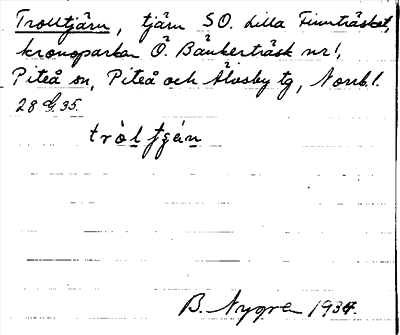 Trolltjärn, tjärn SO. Lilla Finnträsket,
kronoparken Ö. Bänkerträsk nr 1,
Piteå sn, Piteå och Älvsby tg, Norrb. l.
28 G. 35.
tròl tjæ̀n
B. Nygren 1934.